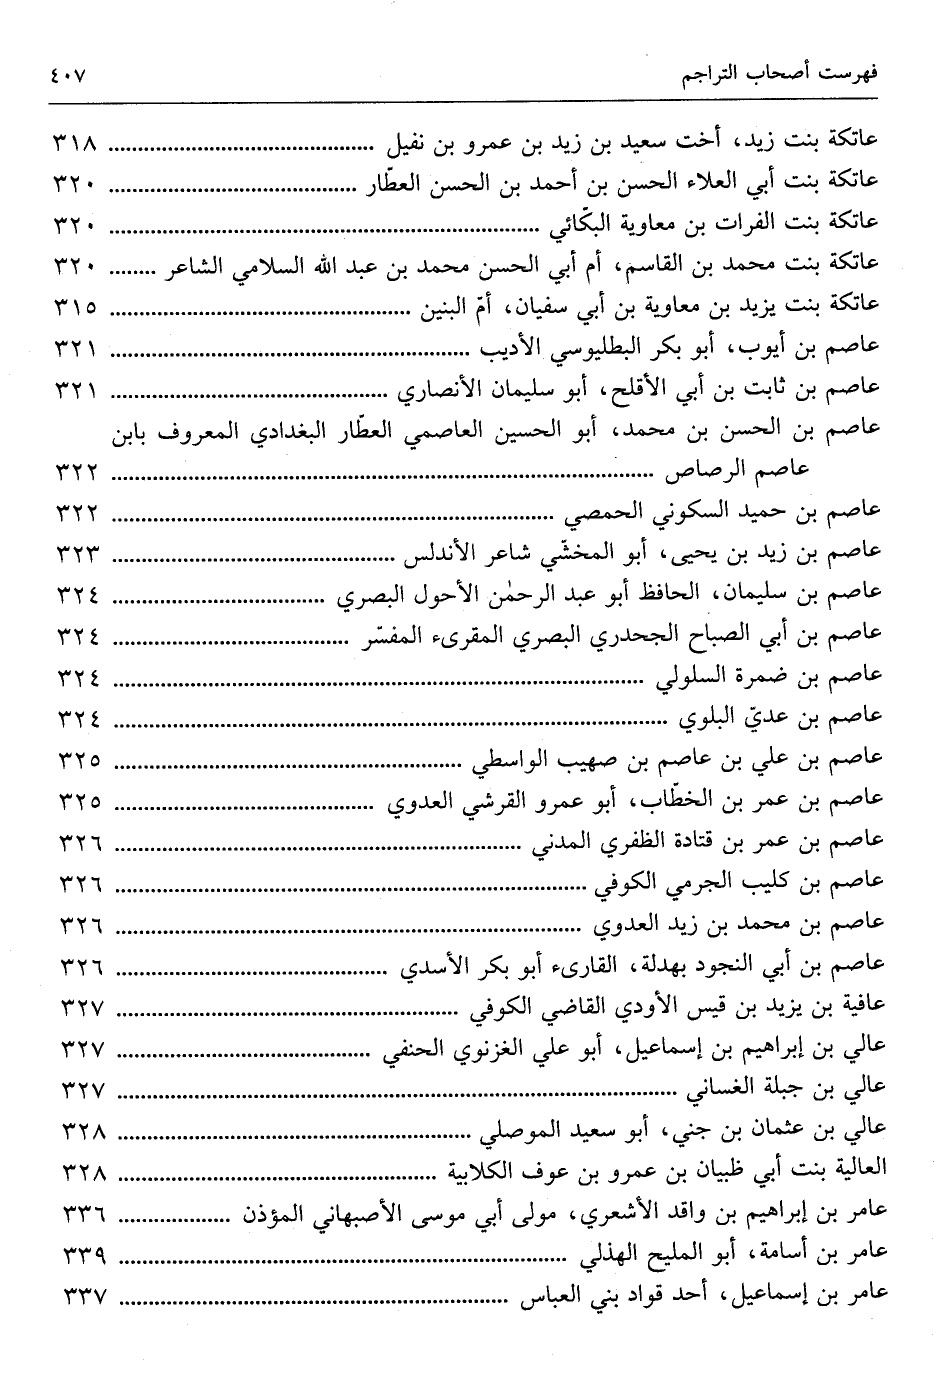 فهرست أصحاب التراجم ٤٠٧
عاتكة بنت زيد، أخت سعيد بن زيد بن عمرو بن نفيل ............ ٣١٨
عاتكة بنت أبي العلاء الحسن بن أحمد بن الحسن العطّار ............ ٣٢٠
عاتكة بنت الفرات بن معاوية البكّائي ............ ٣٢٠
عاتكة بنت محمد بن القاسم، أم أبي الحسن محمد بن عبد الله السلامي الشاعر ........ ٣٢٠
عاتكة بنت يزيد بن معاوية بن أبي سفيان، أمّ البنين ............ ٣١٥
عاصم بن أيوب، أبو بكر البطليوسي الأديب ............ ٣٢١
عاصم بن ثابت بن أبي الأقلح، أبو سليمان الأنصاري ............ ٣٢١
عاصم بن الحسن بن محمد، أبو الحسين العاصمي العطّار البغدادي المعروف بابن
عاصم الرصاص ............ ٣٢٢
عاصم بن حميد السكوني الحمصي ............ ٣٢٢
عاصم بن زيد بن يحيى، أبو المخشّي شاعر الأندلس ............ ٣٢٣
عاصم بن سليمان، الحافظ أبو عبد الرحمٰن الأحول البصري ............ ٣٢٤
عاصم بن أبي الصباح الجحدري البصري المقرىء المفسّر ............ ٣٢٤
عاصم بن ضمرة السلولي ............ ٣٢٤
عاصم بن عديّ البلوي ............ ٣٢٤
عاصم بن علي بن عاصم بن صهيب الواسطي ............ ٣٢٥
عاصم بن عمر بن الخطّاب، أبو عمرو القرشي العدوي ............ ٣٢٥
عاصم بن عمر بن قتادة الظفري المدني ............ ٣٢٦
عاصم بن كليب الجرمي الكوفي ............ ٣٢٦
عاصم بن محمد بن زيد العدوي ............ ٣٢٦
عاصم بن أبي النجود بهدلة، القارىء أبو بكر الأسدي ............ ٣٢٦
عافية بن يزيد بن قيس الأودي القاضي الكوفي ............ ٣٢٧
عالي بن إبراهيم بن إسماعيل، أبو علي الغزنوي الحنفي ............ ٣٢٧
عالي بن جبلة الغساني ............ ٣٢٧
عالي بن عثمان بن جني، أبو سعيد الموصلي ............ ٣٢٨
العالية بنت أبي ظبيان بن عمرو بن عوف الكلابية ............ ٣٢٨
عامر بن إبراهيم بن واقد الأشعري، مولى أبي موسى الأصبهاني المؤذن ............ ٣٣٦
عامر بن أسامة، أبو المليح الهذلي ............ ٣٣٩
عامر بن إسماعيل، أحد قواد بني العباس ............ ٣٣٧